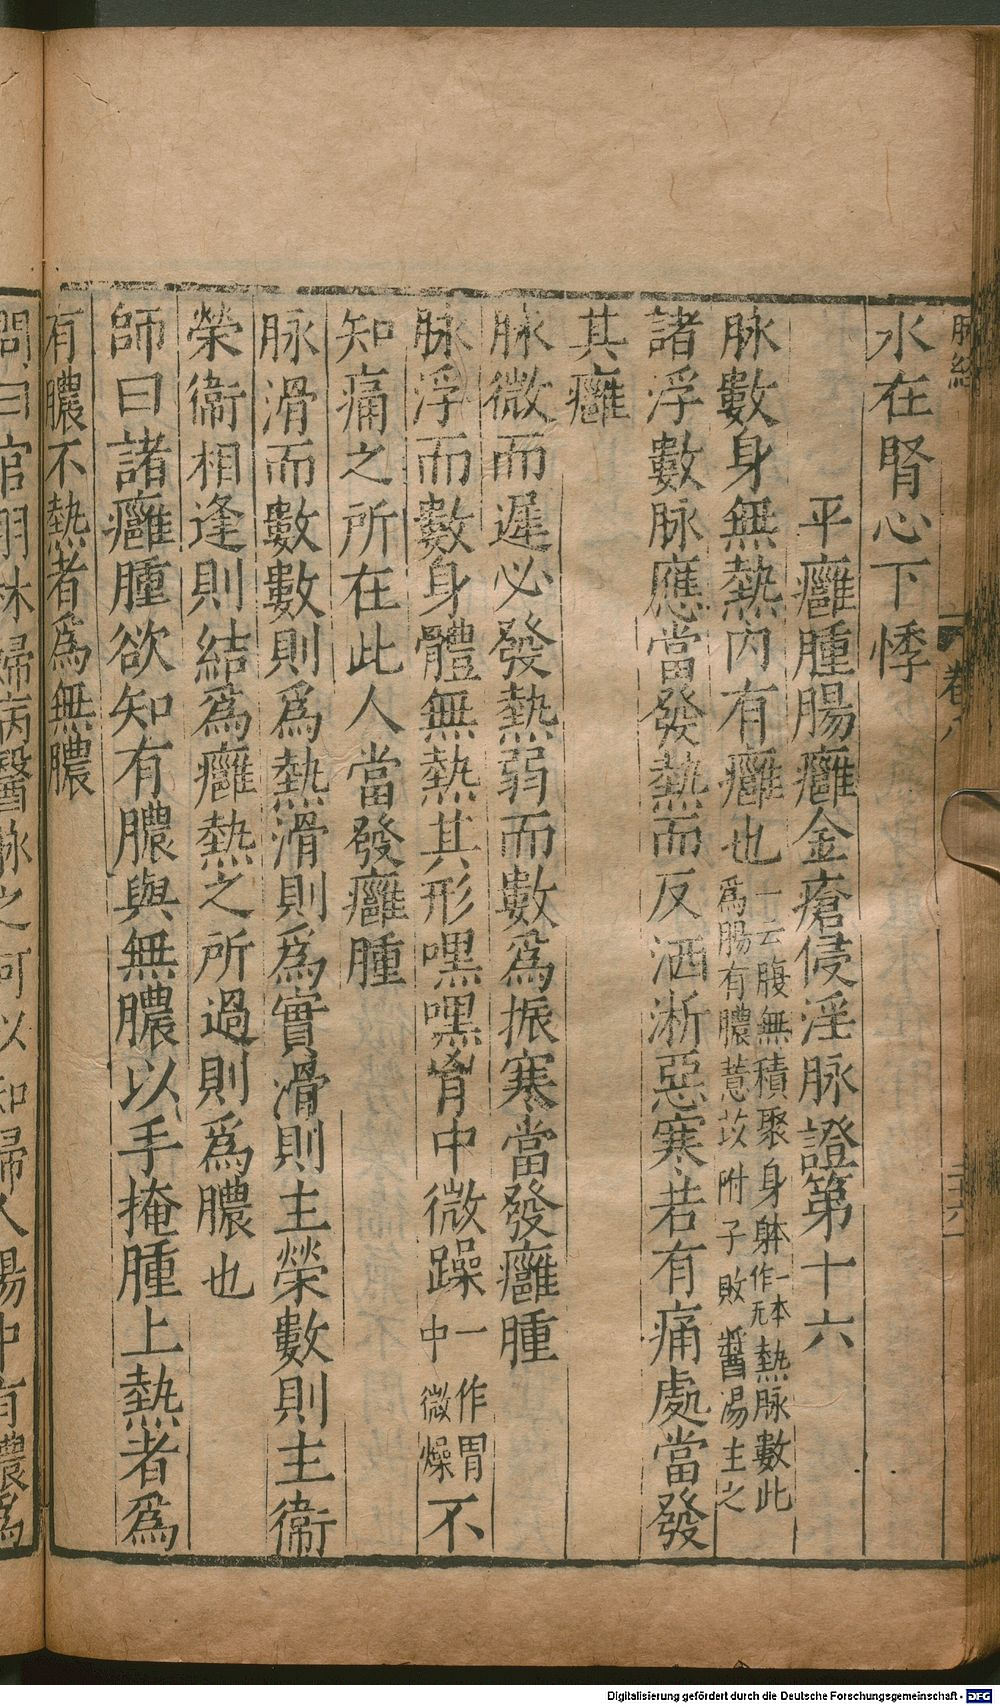 脉經
卷八
水在腎心下悸
平癰腫腸癰金瘡侵淫脉證第十六
脉數身無熱內有癰也一云腹無積聚身躰一本作无熱脉數此爲腸有膿薏苡附子敗醬湯主之
諸浮數脉應當發熱而反洒淅惡寒若有痛處當發
其癰
脉微而遲必發熱弱而數爲振寒當發癰腫
脉浮而數身體無熱其形嘿嘿胷中微躁一作胃中微燥不
知痛之所在此人當發癰腫
脉滑而數數則爲熱滑則爲實滑則主榮數則主衞
榮衞相逢則結爲癰熱之所過則爲膿也
師曰諸癰腫欲知有膿與無膿以手掩腫上熱者爲
有膿不熱者爲無膿
問曰官羽林婦病醫脉之何以知婦人腸中有膿爲
Digitalisierung gefördert durch die Deutsche Forschungsgemeinschaft - DFG